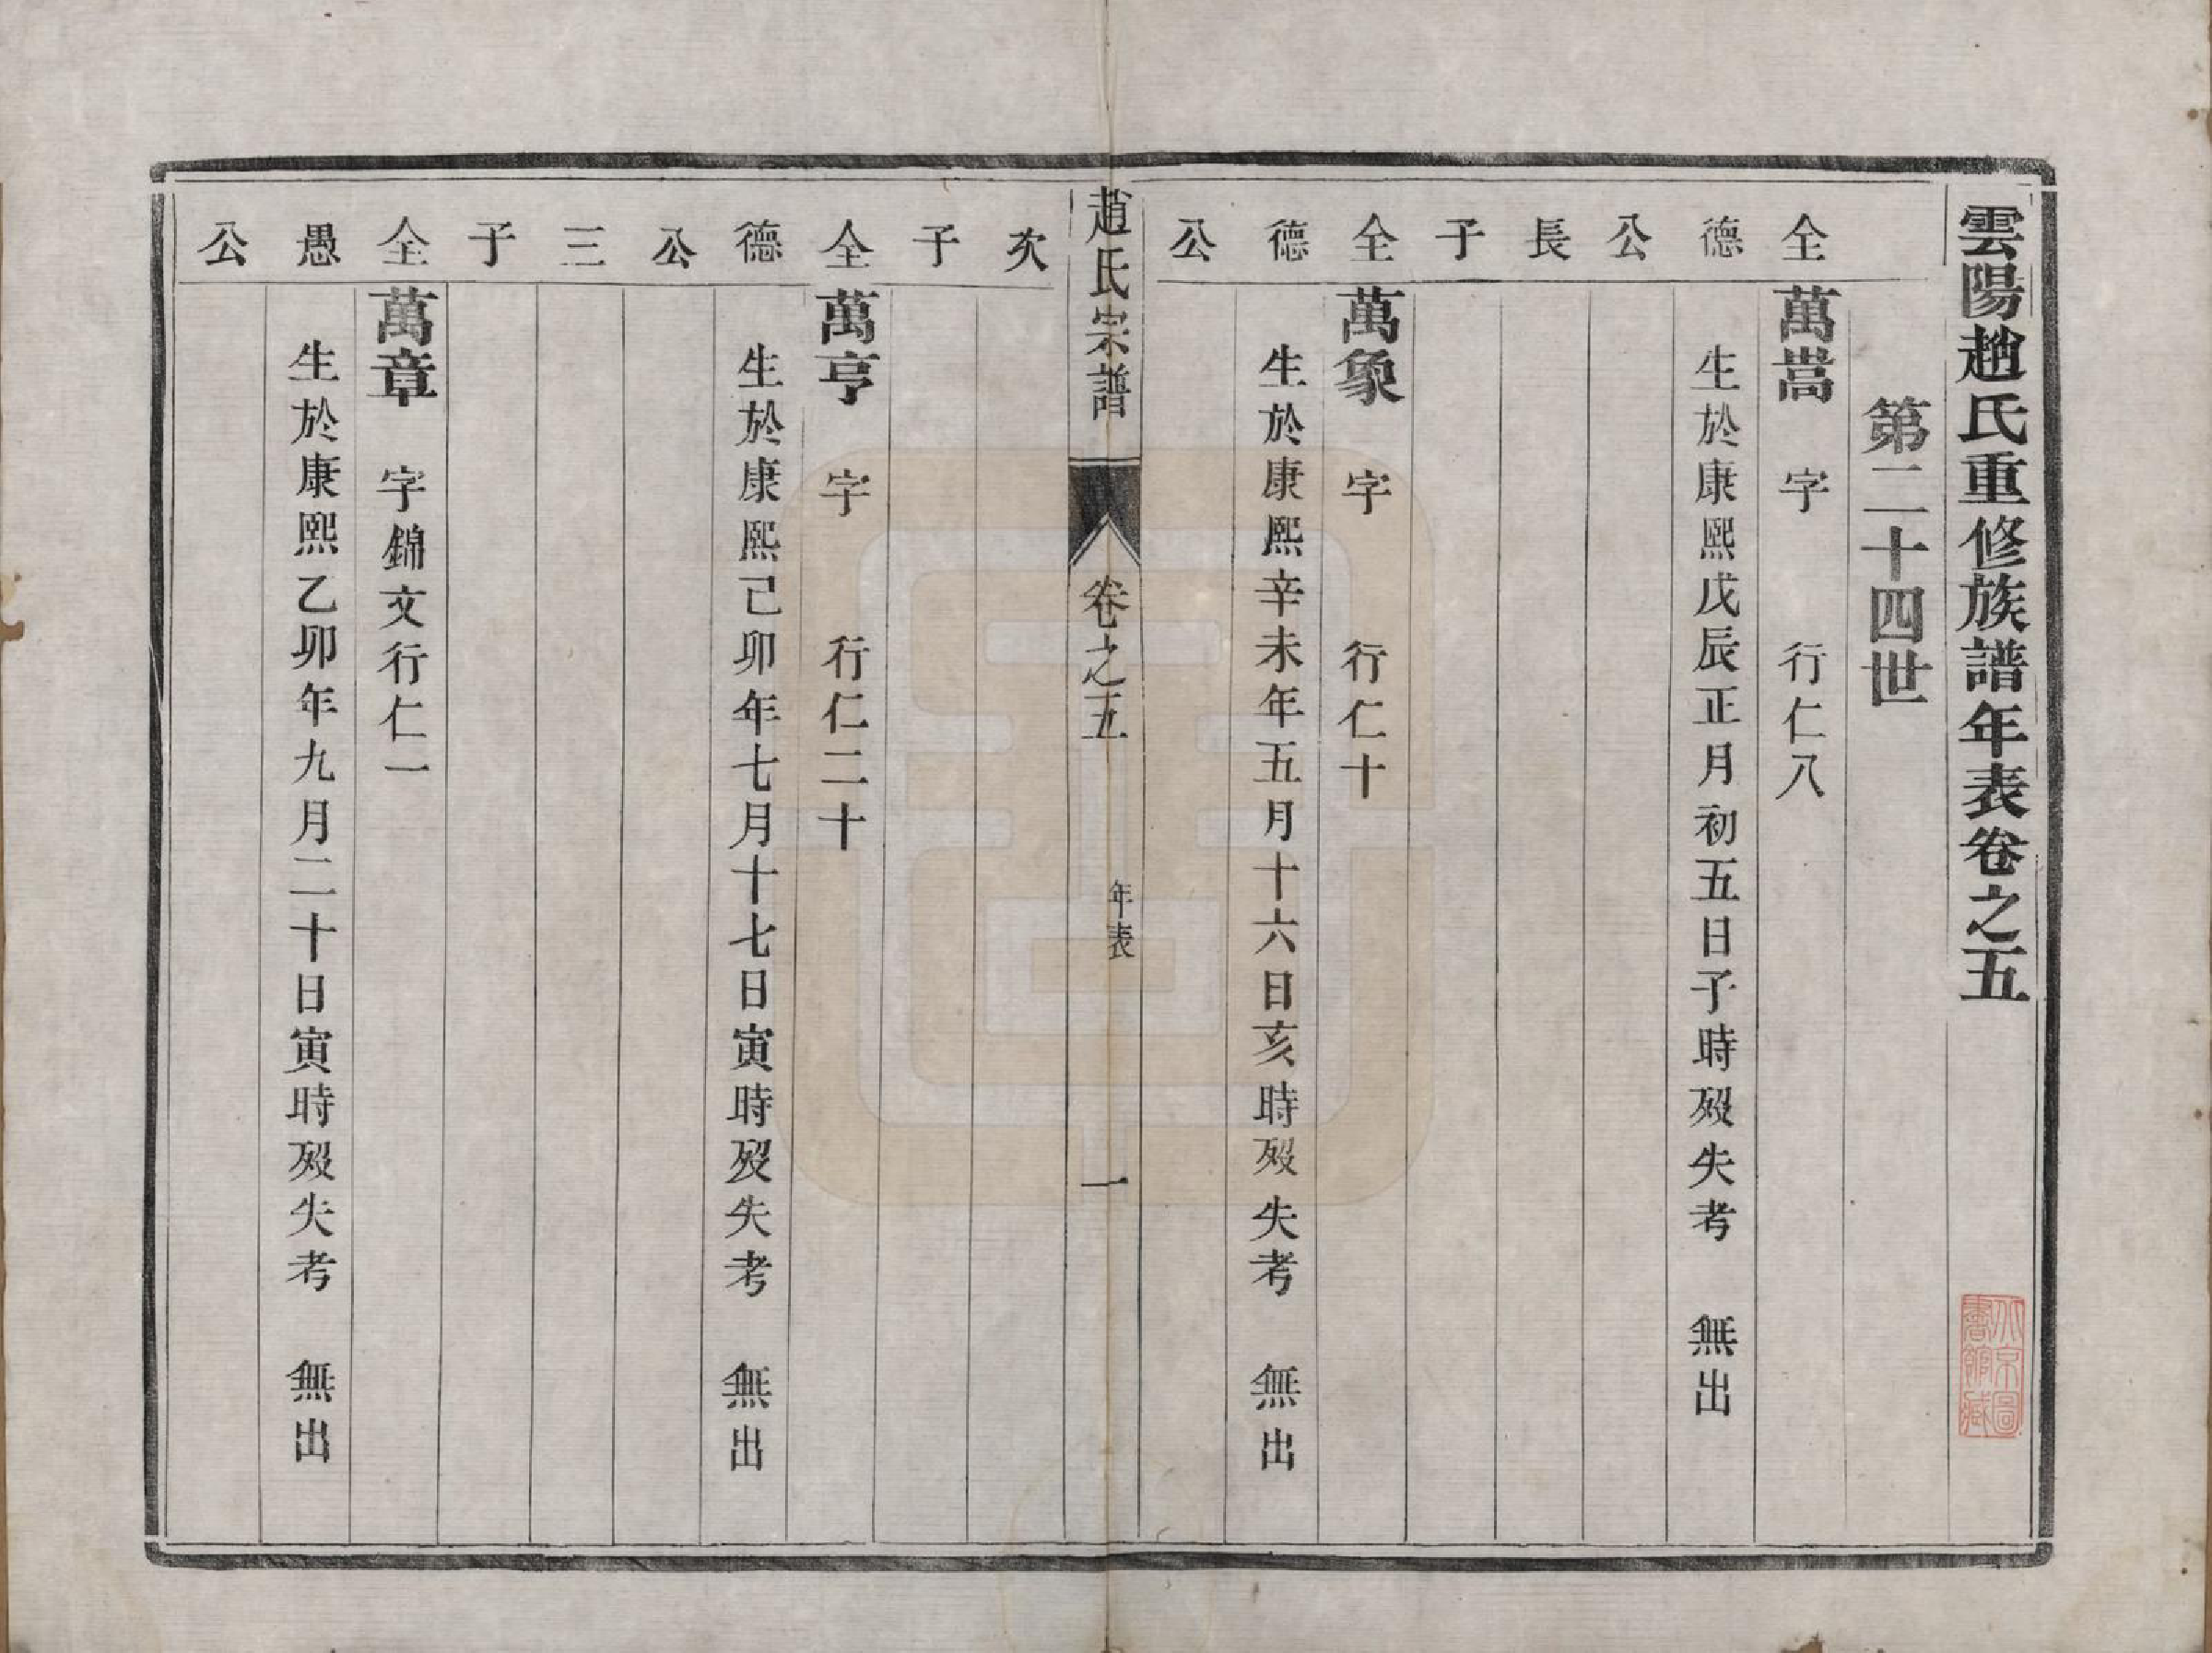 雲陽趙氏重修族譜年表卷之五
第二十四世
全德公長子
萬嵩 字 行仁八
生於康熙戊辰正月初五日子時殁失考 無出
全德公次子
萬象 字 行仁十
生於康熙辛未年五月十六日亥時殁失考 無出
趙氏宗譜 卷之五 年表 一
全德公三子
萬亨 字 行仁二十
生於康熙己卯年七月十七日寅時殁失考 無出
全愚公
萬章 字錦文行仁一
生於康熙乙卯年九月二十日寅時殁失考 無出
北京圖書館藏